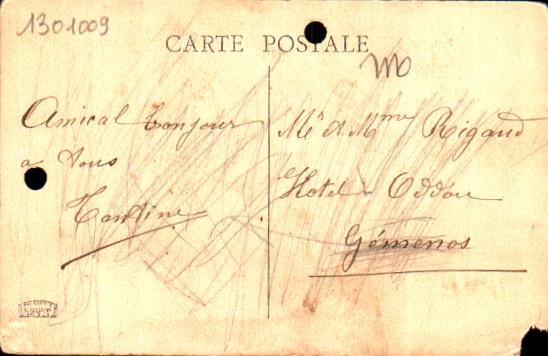 1301009
CARTE POSTALE
Amical bonjour
a tous
Tantine
Mr et Mme Rigaud
Hotel Oddou
Gémenos